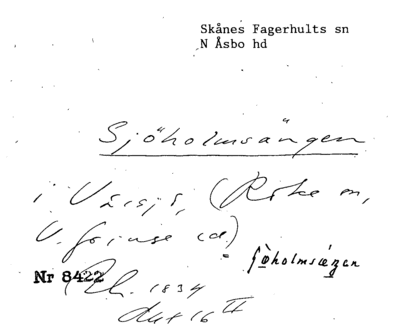 Skånes Fagerhults sn
N Åsbo hd
Sjöholmsängen
i Väsjö, (Röke sn,
V. Göinge hd)
Sjöholmsängen
Nr 8422
Rh. 1834